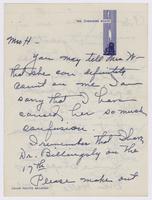 Mrs H -
You may tell Mrs W
that she can definitely
count on me. I am
sorry that I have
caused her so much
confusion.
I remember that I have
Dr. on the
17th
Please make out